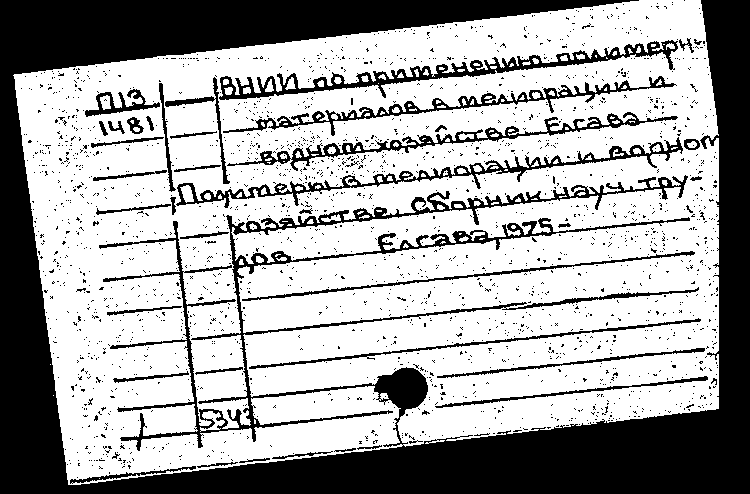 П13 ВНИИ по применению полимерн.
1481 материалов в мелиорации и
водном хозяйстве. Елгава
Полимеры в мелиорации и водном
хозяйстве. Сборник науч. тру-
дов Елгава, 1975-
5343